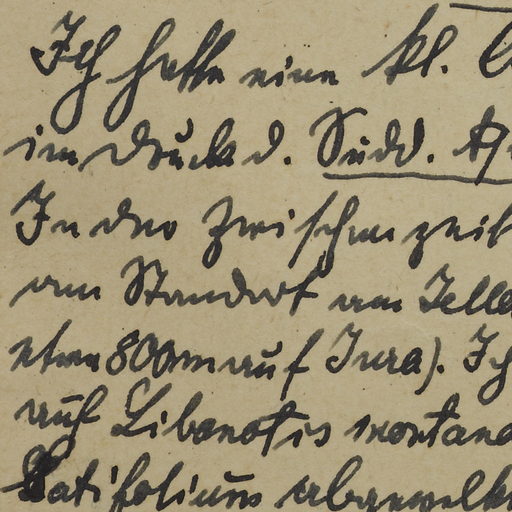 Ich hatte eine kl.
im Druck d. Südd.
In der Zwischenzeit
am Standort am
etwa 800m auf Jura). Ich
auf Libanotis montana
Latifolium abgewelkt